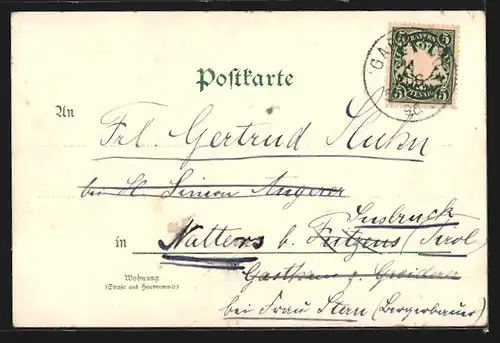 BAYERN
5 5
PFENNIG
GA
98
Postkarte
An
Frl. Gertrud
bei H. Simon Angerer
Insbruck
in Natters b. Fritzens (Tirol
Wohnung
(Straße und Hausnummer)
Gasthaus z.
bei Frau Stern (Bergerbauer)